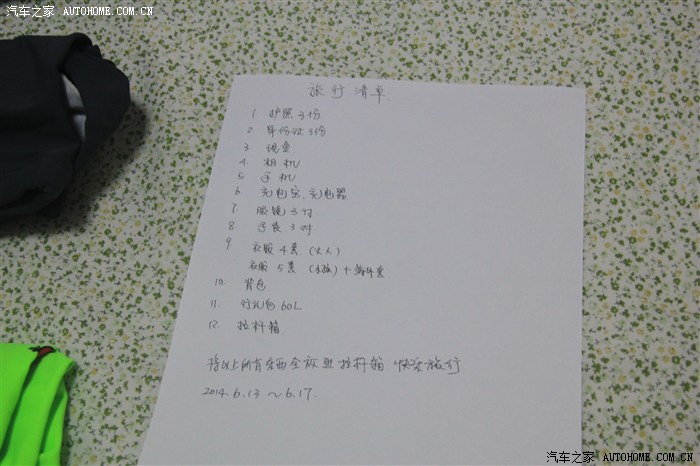 汽车之家 AUTOHOME.COM.CN
旅行清单
1. 护照3份
2. 身份证3份
3 现金
4 相机
5 手机
6 充电宝、充电器
7 眼镜3付
8 手表3对
9 衣服4套(大人)
衣服5套(小孩)+
10. 背包
11. 行礼包60L
12. 拉杆箱
将以上所有东西全放进拉杆箱 快乐旅行
2014.6.13~6.17.
汽车之家 AUTOHOME.COM.CN